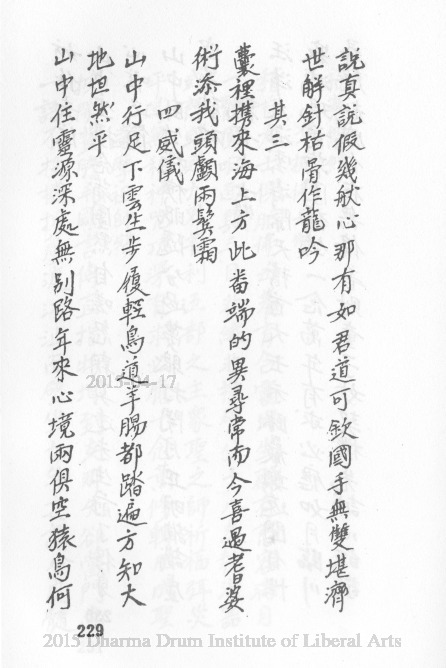 說真說假幾般心那有如君道可欽國手無雙堪濟
世解針枯骨作龍吟
其三
囊裡携來海上方此番端的異尋常而今喜過耆婆
術添我頭顱兩鬓霜
四威儀
山中行足下雲生步履輕鳥道羊腸都踏遍方知大
地坦然平
山中住靈源深處無別路年來心境兩俱空猿鳥何
2013-04-17
229
2015 Dharma Drum Institute of Liberal Arts